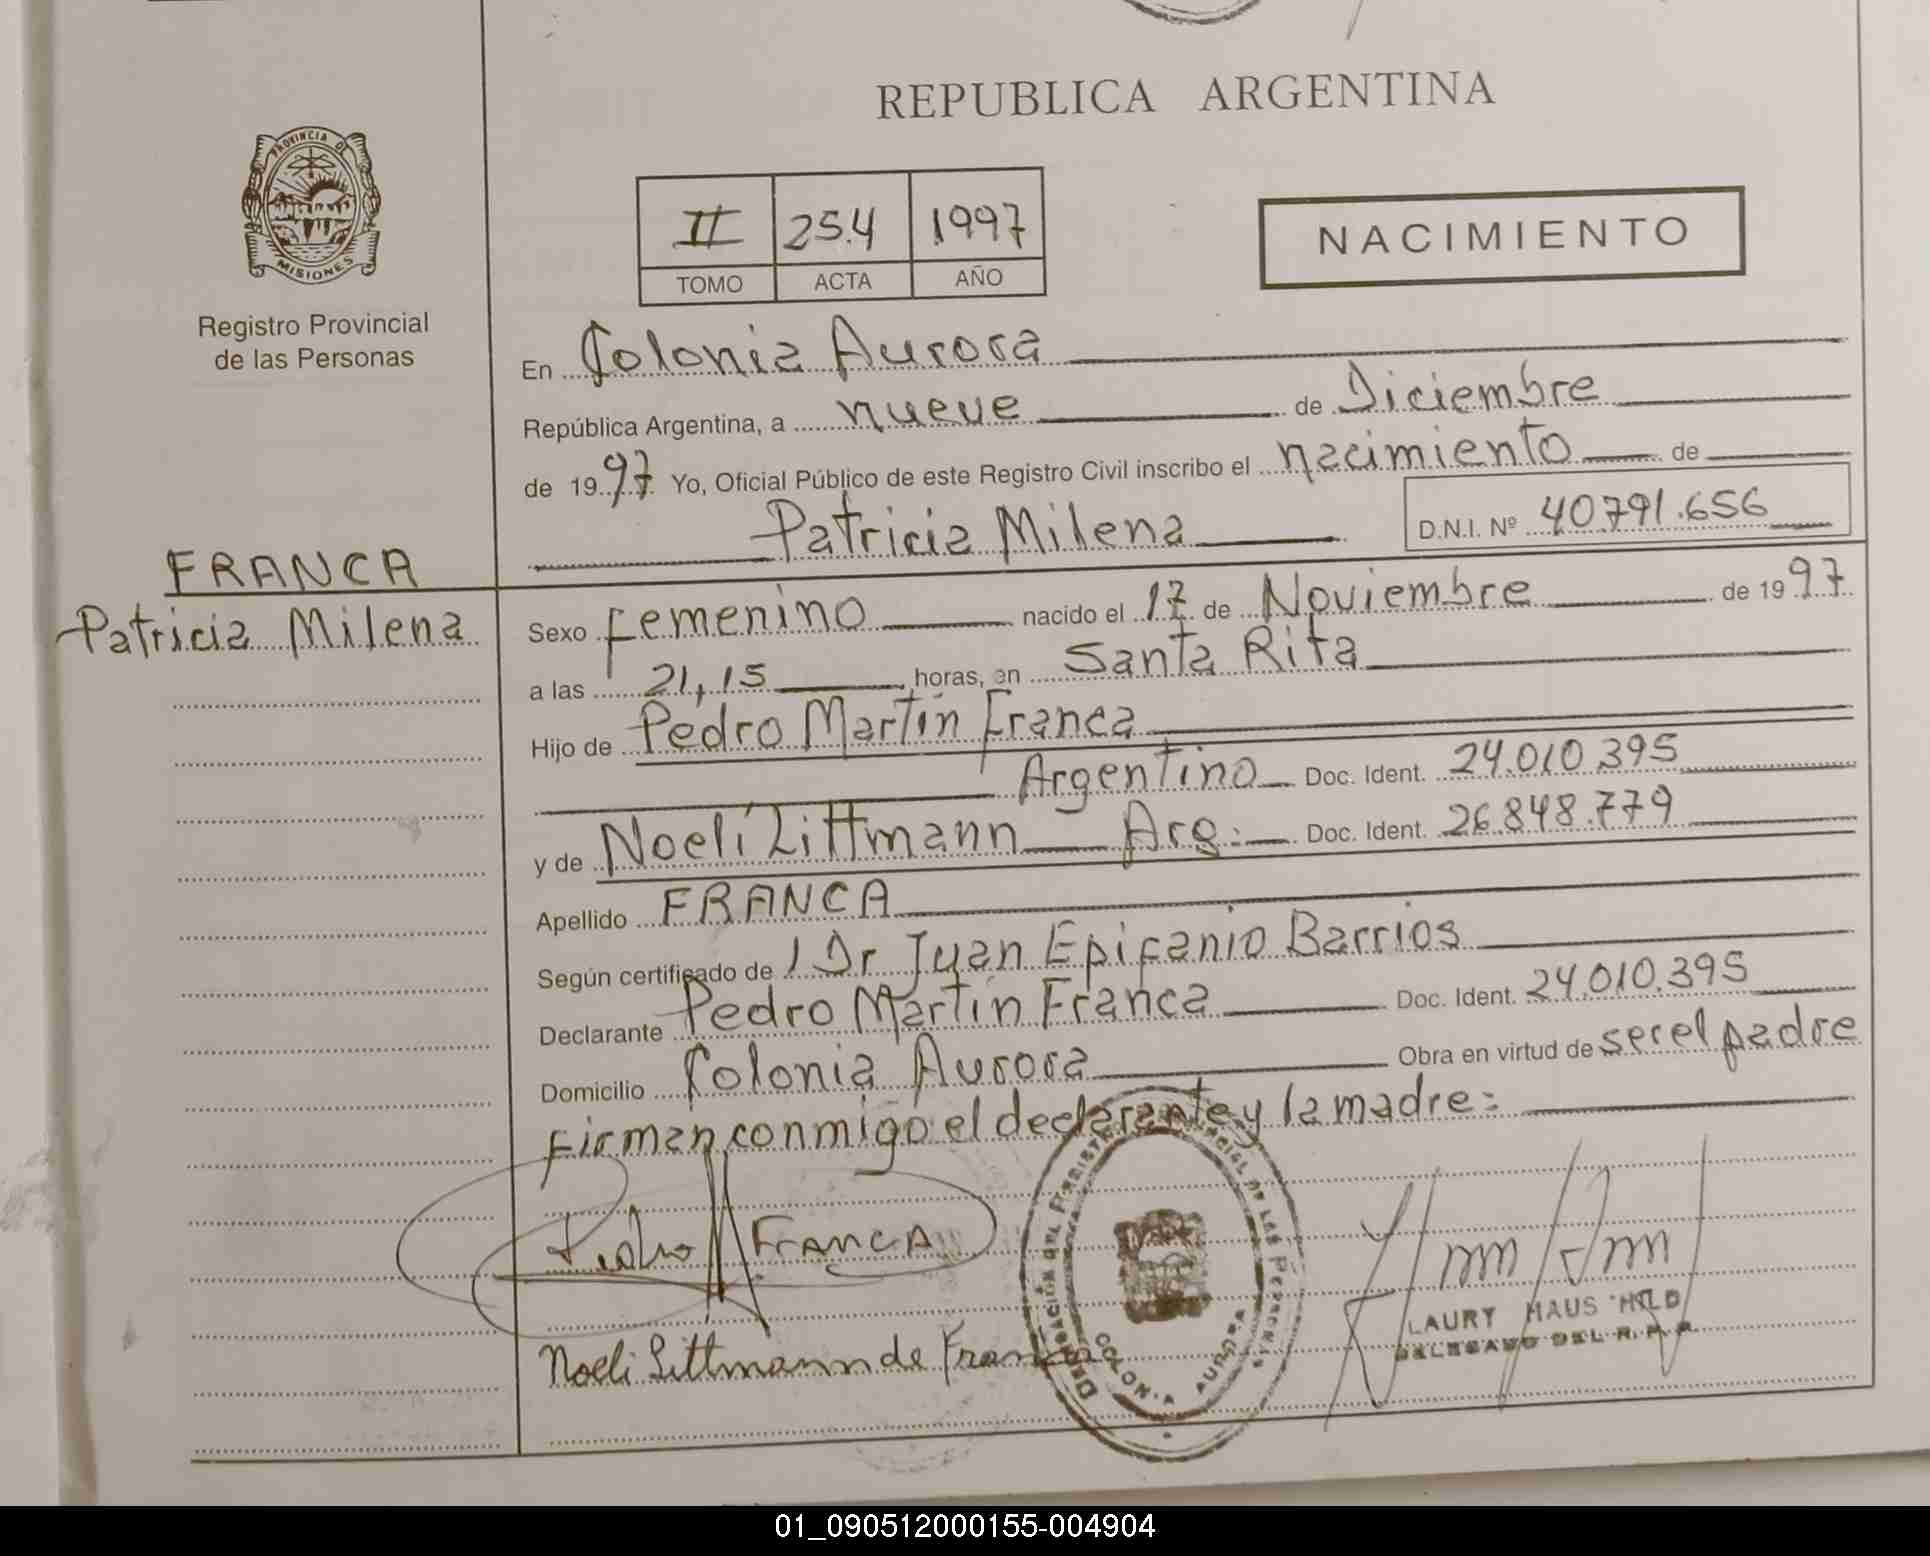 REPUBLICA ARGENTINA
PROVINCIA DE
MISIONES
Registro Provincial
de las Personas
II 254 1997
TOMO ACTA AÑO
NACIMIENTO
En Colonia Aurora
República Argentina, a nueve de Diciembre
de 1997 Yo, Oficial Público de este Registro Civil inscribo el nacimiento de
Patricia Milena D.N.I. Nº 40.791.656
FRANCA
Patricia Milena
Sexo Femenino nacido el 17 de Noviembre de 1997
a las 21,15 horas, en Santa Rita
Hijo de Pedro Martín Franca
Argentino Doc. Ident. 24.010.395
y de Noelí Littmann Arg: Doc. Ident. 26.848.779
Apellido FRANCA
Según certificado de 1 Dr Juan Epifanio Barrios
Declarante Pedro Martín Franca Doc. Ident. 24.010.395
Domicilio Colonia Aurora Obra en virtud de ser el padre
Firman conmigo el declarante y la madre:
Pedro M FRANCA
Noeli Littmann de Franca
DELEGACION DEL REGISTRO PROVINCIAL DE LAS PERSONAS
COLONIA AURORA
LAURY HAUS HILD
DELEGADO DEL R. P. P.
01_090512000155-004904